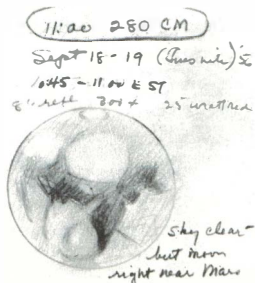 11:00 280 CM
Sept 18-19 (Tues nite) '56
10:45 - 11:00 EST
8" refl 300 x 25 wratten red
sky clear -
but moon
right near Mars